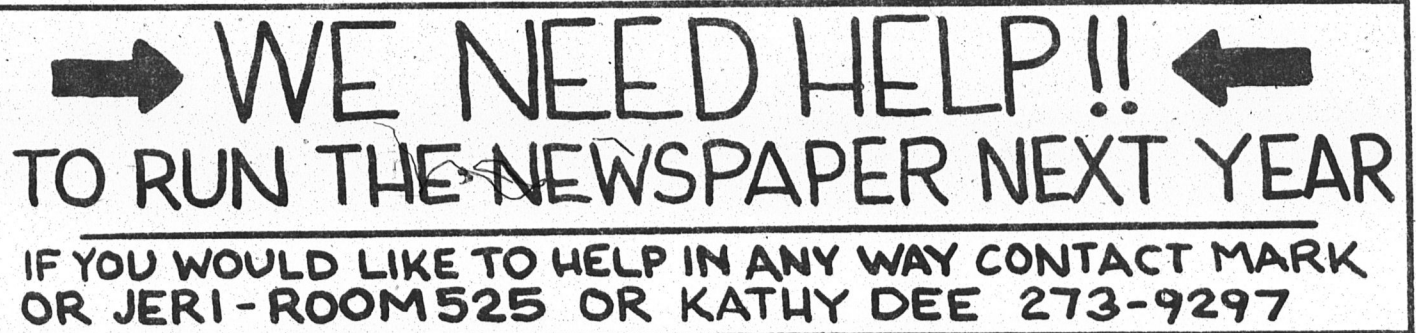 WE NEED HELP!!
TO RUN THE NEWSPAPER NEXT YEAR
IF YOU WOULD LIKE TO HELP IN ANY WAY CONTACT MARK
OR JERI-ROOM 525 OR KATHY DEE 273-9297